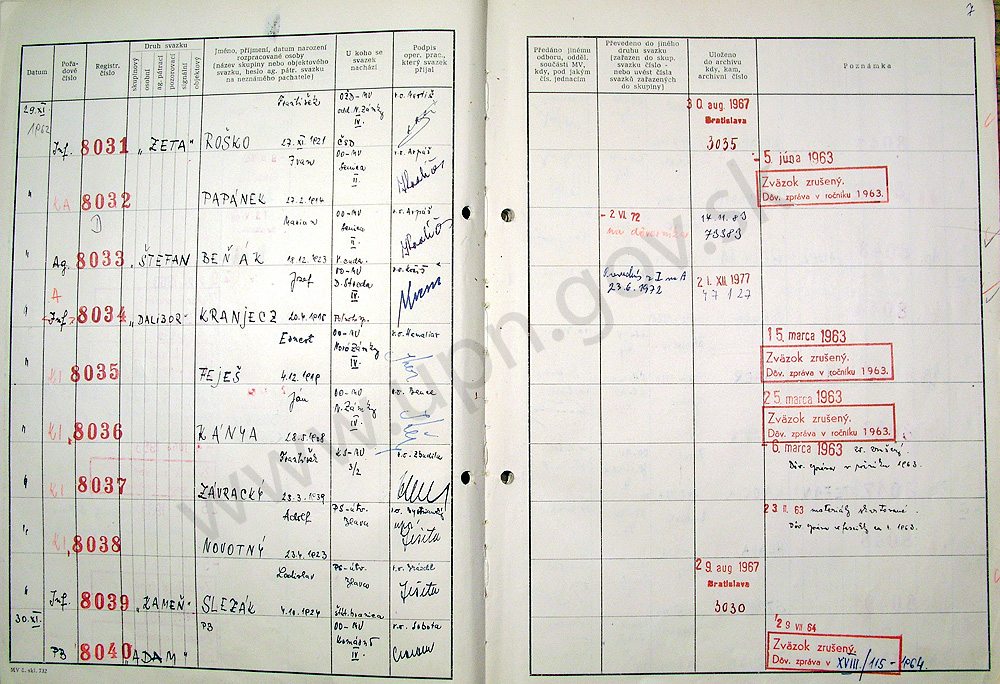 7
Datum
Pořa-
dové
číslo
Registr.
číslo
Druh svazku
skupinový
osobní
ag. pátrací
pozorovací
signální
objektový
Jméno, příjmení, datum narození
rozpracované osoby
(název skupiny nebo objektového
svazku, heslo ag. pátr. svazku
na neznámého pachatele)
U koho se
svazek
nachází
Podpis
oper. prac.
který svazek
přijal
Předáno jinému
odboru, odděl.
součásti MV,
kdy, pod jakým
čís. jednacím
Převedeno do jiného
druhu svazku
(zařazen do skup.
svazku číslo -
nebo uvést čísla
svazků zařazených
do skupiny)
Uloženo
do archivu
kdy, kam,
archivní číslo
Poznámka
29.XI.
1962
František
IV.
30. aug. 1967
Bratislava
Inf. 8031 „ZETA“ ROŠKO 27. XI. 1921 ČSD
3035
Ivan
OO-MV
Senica
II.
r.o. Arpáš
- 5. júna 1963
Zväzok zrušený.
Dôv. zpráva v ročníku 1963.
" KA 8032 PAPÁNEK 27.2.1914
D
Marian
OO-MV
Senica
II.
r.o. Arpáš
- 2 VI. 72
na dôverníka
14.11.83
73383
Ag. 8033 „ŠTEFAN BEŇÁK 18.12.1923
A
Jozef
OO-MV
D. Streda
IV.
Prevedený z I na A
23.6.1972
21. XII. 1977
47127
" Inf. 8034 „DALIBOR“ KRANJECZ 20.4.1915
Ernest
OO-MV
Nové Zámky
IV.
r.o. Hamaliar
15. marca 1963
Zväzok zrušený.
Dôv. zpráva v ročníku 1963.
" KI 8035 FEJEŠ 4.12.1919
Ján
OO-MV
N. Zámky
IV.
r.o. Bence
25. marca 1963
Zväzok zrušený.
Dôv. zpráva v ročníku 1963.
" KI, 8036 KÁNYA 28.5.1908
František
KS-MV
3/2
r.o. Zbudila
- 6. marca 1963 zv. zrušený
Dôv. zpráva v ročníku 1963.
" KI 8037 ZÁVRACKÝ 23.3.1939
Adolf
PS-útv.
Ilava
23 II. 63 materiály skartované.
" KI, 8038 NOVOTNÝ 23.4.1923
Ladislav
PS-útv.
29. aug 1967
Bratislava
" Inf. 8039 „KAMEŇ“ SLEZÁK 4.10.1924
3030
30.XI.
PB
OO-MV
Komárno
IV.
r.o. Sobota
29 VII 64
Zväzok zrušený.
Dôv. zpráva v XVIII./115-1964.
PB 8040 „ADAM“
MV č. skl. 732
www.upn.gov.sk